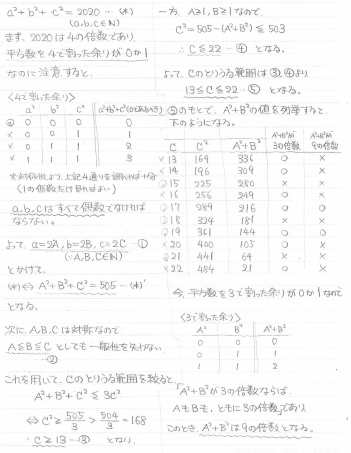 a²+b²+c²=2020 …(*)
(a,b,c∈N)
まず、2020は4の倍数であり、
平方数を4で割った余りが0か1
なのに注意すると、
<4で割った余り>
a² b² c² a²+b²+c²
◎ 0 0 0 0
× 0 0 1 1
× 0 1 1 2
× 1 1 1 3
※対称性より、上記4通りを調べれば十分
(1の個数だけ見ればよい)
a,b,cはすべて偶数でなければ
ならない。
よって、a=2A, b=2B, c=2C …①
(A,B,C∈N)
とかけて、
(*)⇔ A²+B²+C²=505 …(*)'
となる。
次に、A,B,Cは対称なので
A≦B≦C としても一般性を失わない
…②
これを用いて、Cのとりうる範囲を絞ると、
A²+B²+C²≦3C²
⇔ C²≧505/3 > 504/3 =168
∴ C≧13 …③ となり、
一方、A≧1, B≧1なので、
C²=505-(A²+B²)≦503
∴ C≦22 …④ となる。
よって、Cのとりうる範囲は③,④より、
13≦C≦22 …⑤ となる。
⑤のもとで、A²+B²の値を列挙すると、
下のようになる。
C C² A²+B² A²+B²が3の倍数 A²+B²が9の倍数
13 169 336 ○ ×
14 196 309 ○ ×
15 225 280 × ×
16 256 249 ○ ×
17 289 216 ○ ○
18 324 181 × ×
19 361 144 ○ ○
20 400 105 ○ ×
21 441 64 × ×
22 484 21 ○ ×
今、平方数を3で割った余りが0か1なので
<3で割った余り>
A² B² A²+B²
0 0 0
0 1 1
1 1 2
「A²+B²が3の倍数ならば、
AもBも、ともに3の倍数」であり、
このとき、A²+B²は9の倍数となる。